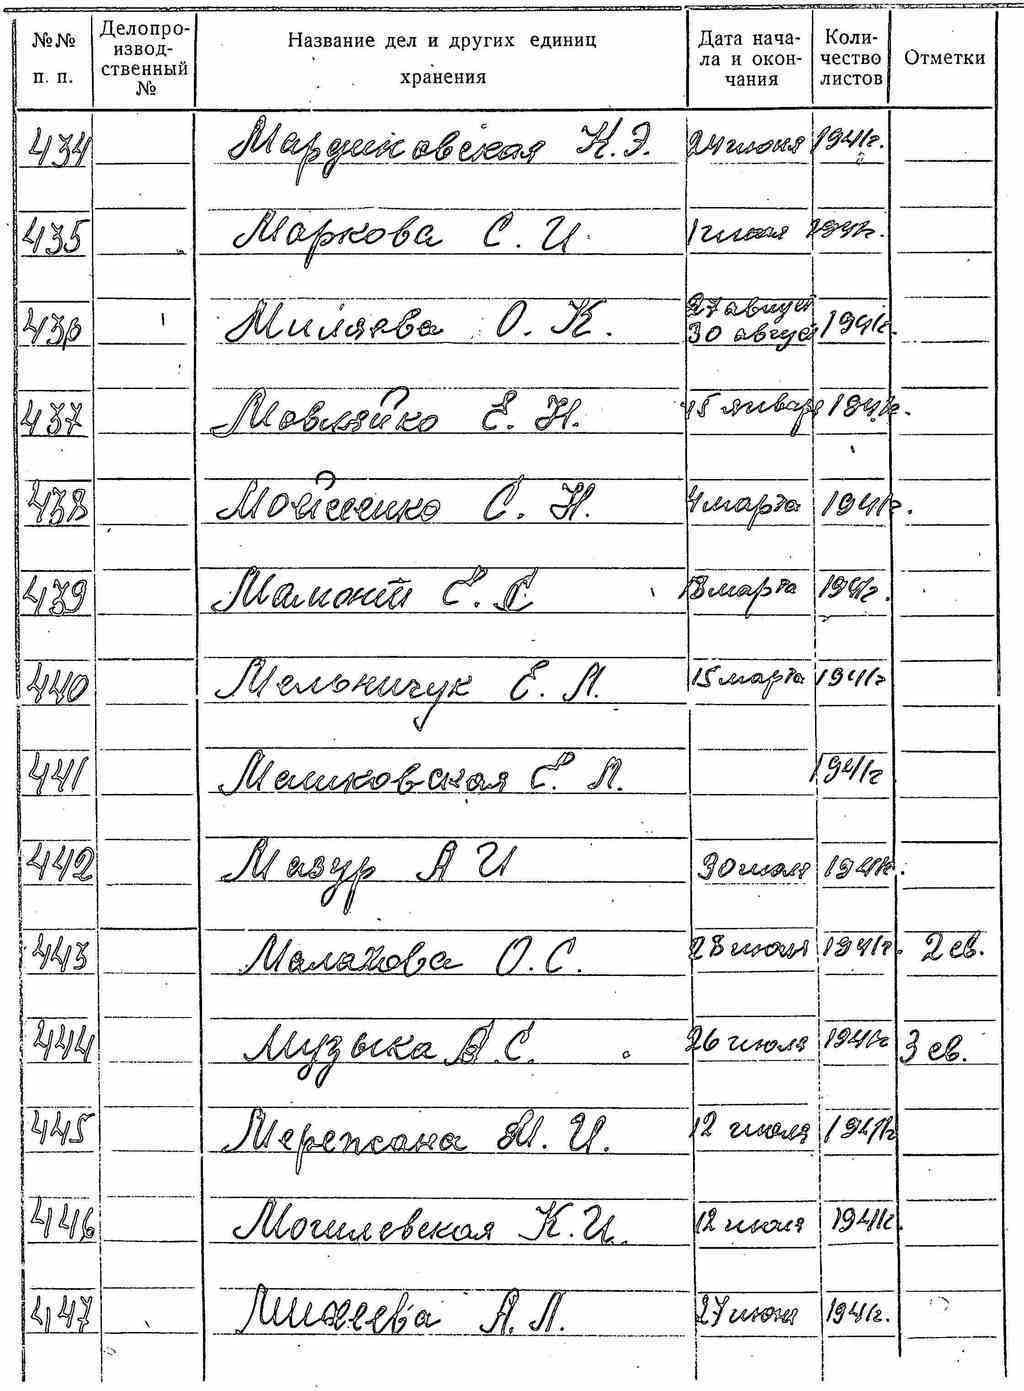 №№ п. п.
Делопро-
извод-
ственный
№
Название дел и других единиц
хранения
Дата нача-
ла и окон-
чания
Коли-
чество
листов
Отметки
434 Мардиковская К.Э. 24 июня 1941г.
435 Маркова С. И. 1 июля 1941г.
436 Миляева О. К. 27 август 30 август 1941г.
437 Мовляйко Е. Н. 15 январ 1941г.
438 Мойсеенко С. Н. 4 марта 1941г.
439 Мамонт Е. С 18 марта 1941г.
440 Мельничук Е. Л. 15 марта 1941г
441 Машковская Е. Л. 1941г
442 Мазур А И 30 июля 1941г.
443 Малахова О. С. 28 июля 1941г. 2 св.
444 Музыка В. С. 26 июля 1941г 3 св.
445 Мережана М. И. 12 июля 1941г
446 Могилевская К. И. 12 июля 1941г.
447 Михеева А. Л. 27 июня 1941г.